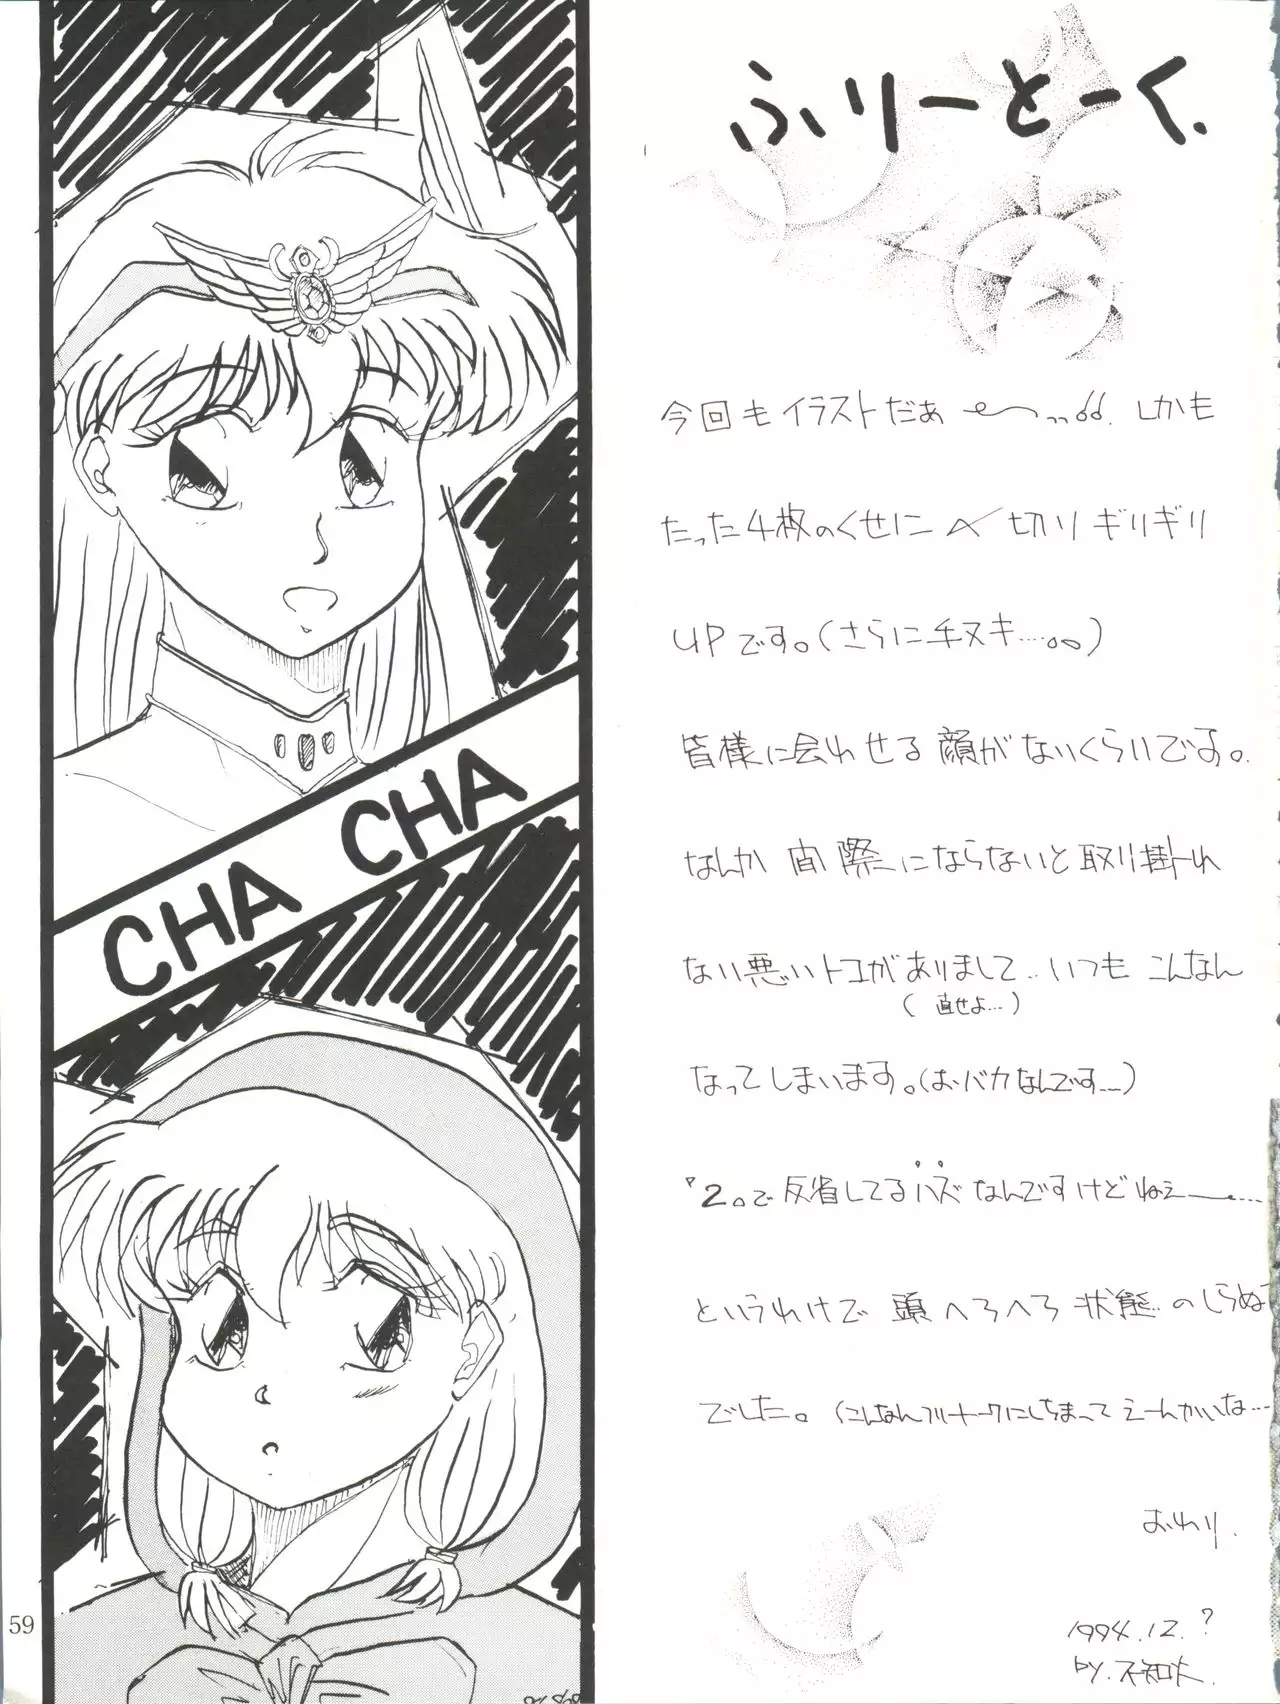 ふりーとーく.
今回もイラストだぁ しかも
たった4枚のくせに〆切りギリギリ
UPです。(さらに手ヌキ….)
皆様に会わせる顔がないくらいです。
なんか間際にならないと取り掛れ
ない悪いトコがありまして‥いつもこんなん
(直せよ…)
なってしまいます。(おバカなんです…)
『2。で反省してるハズなんですけどねぇー…
というわけで 頭へろへろ状態‥のしらぬ
でした。(こんなんフリートークにしちまってえーんかいな…
おわり.
1994.12.?
by.不知火
CHA CHA
59